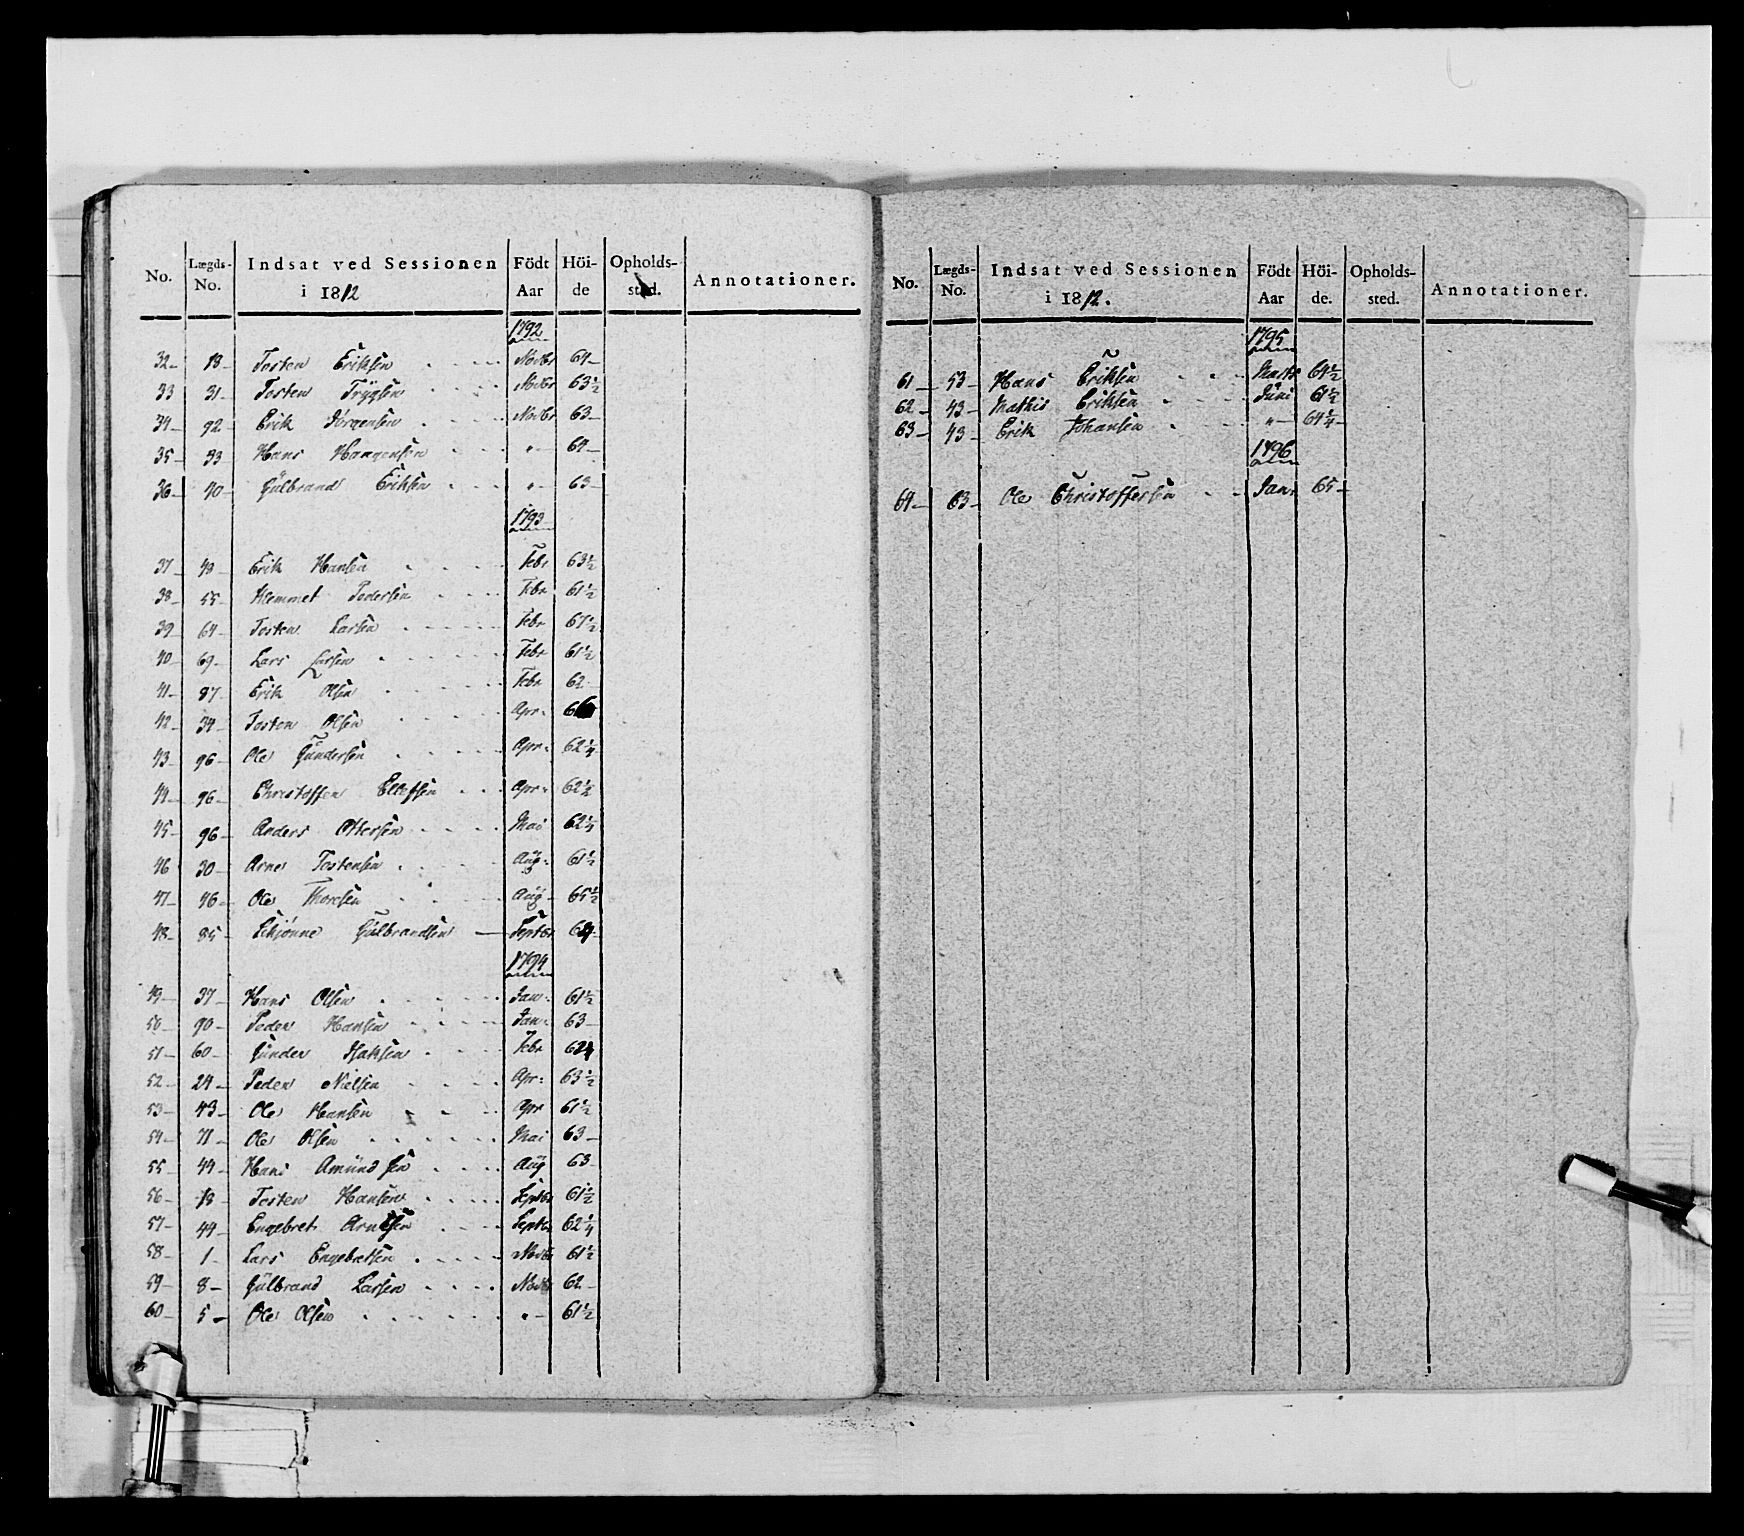 No. Lægds- No. Indsat ved Sessionen i 1812 Födt Aar Höi- de Opholds- sted. Annotationer.
1792
32 18 Tosten Eriksen Novbr 64
33 31 Tosten Trygsen Novbr 63½
34 92 Erik Jörgensen Novbr 63
35 33 Hans Haagensen " 64
36 40 Gülbrand Eriksen " 63
1793
37 43 Erik Hansen Febr 63½
38 55 Klemmet Pedersen Febr 61½
39 64 Tosten Larsen Febr 67½
40 69 Lars Larsen Febr 61½
41 87 Erik Olsen Febr 62
42 34 Tosten Olsen Apr
43 96 Ole Gündersen Apr 62¼
44 96 Christoffer Ellefsen Apr 62½
45 96 Anders Ottersen Mai 62¼
46 30 Arne Tostensen Aüg 61½
47 46 Ole Thoresen Aüg 65½
48 85 Gülbrandsen Septbr 64
1794
49 37 Hans Olsen Jan 61½
50 90 Peder Hansen Jan 63
51 60 Günder Isaksen Febr
52 24 Peder Nielsen Apr 63½
53 43 Ole Hansen Apr 61½
54 71 Ole Olsen Mai 63
55 44 Hans Amündsen Aüg 63
56 18 Tosten Hansen Septbr 61½
57 44 Engebret Arnesen Septbr 62¼
58 1 Lars Engebretsen Novbr 61½
59 8 Gülbrand Larsen Novbr 62
60 5 Ole Olsen " 61½
No. Lægds- No. Indsat ved Sessionen i 1812. Födt Aar Höi- de. Opholds- sted. Annotationer.
1795
61 53 Hans Eriksen Marts 64½
62 43 Mathis Eriksen Jüni 61½
63 43 Erik Johansen " 64¼
1796
64 63 Ole Christoffersen Jan 65